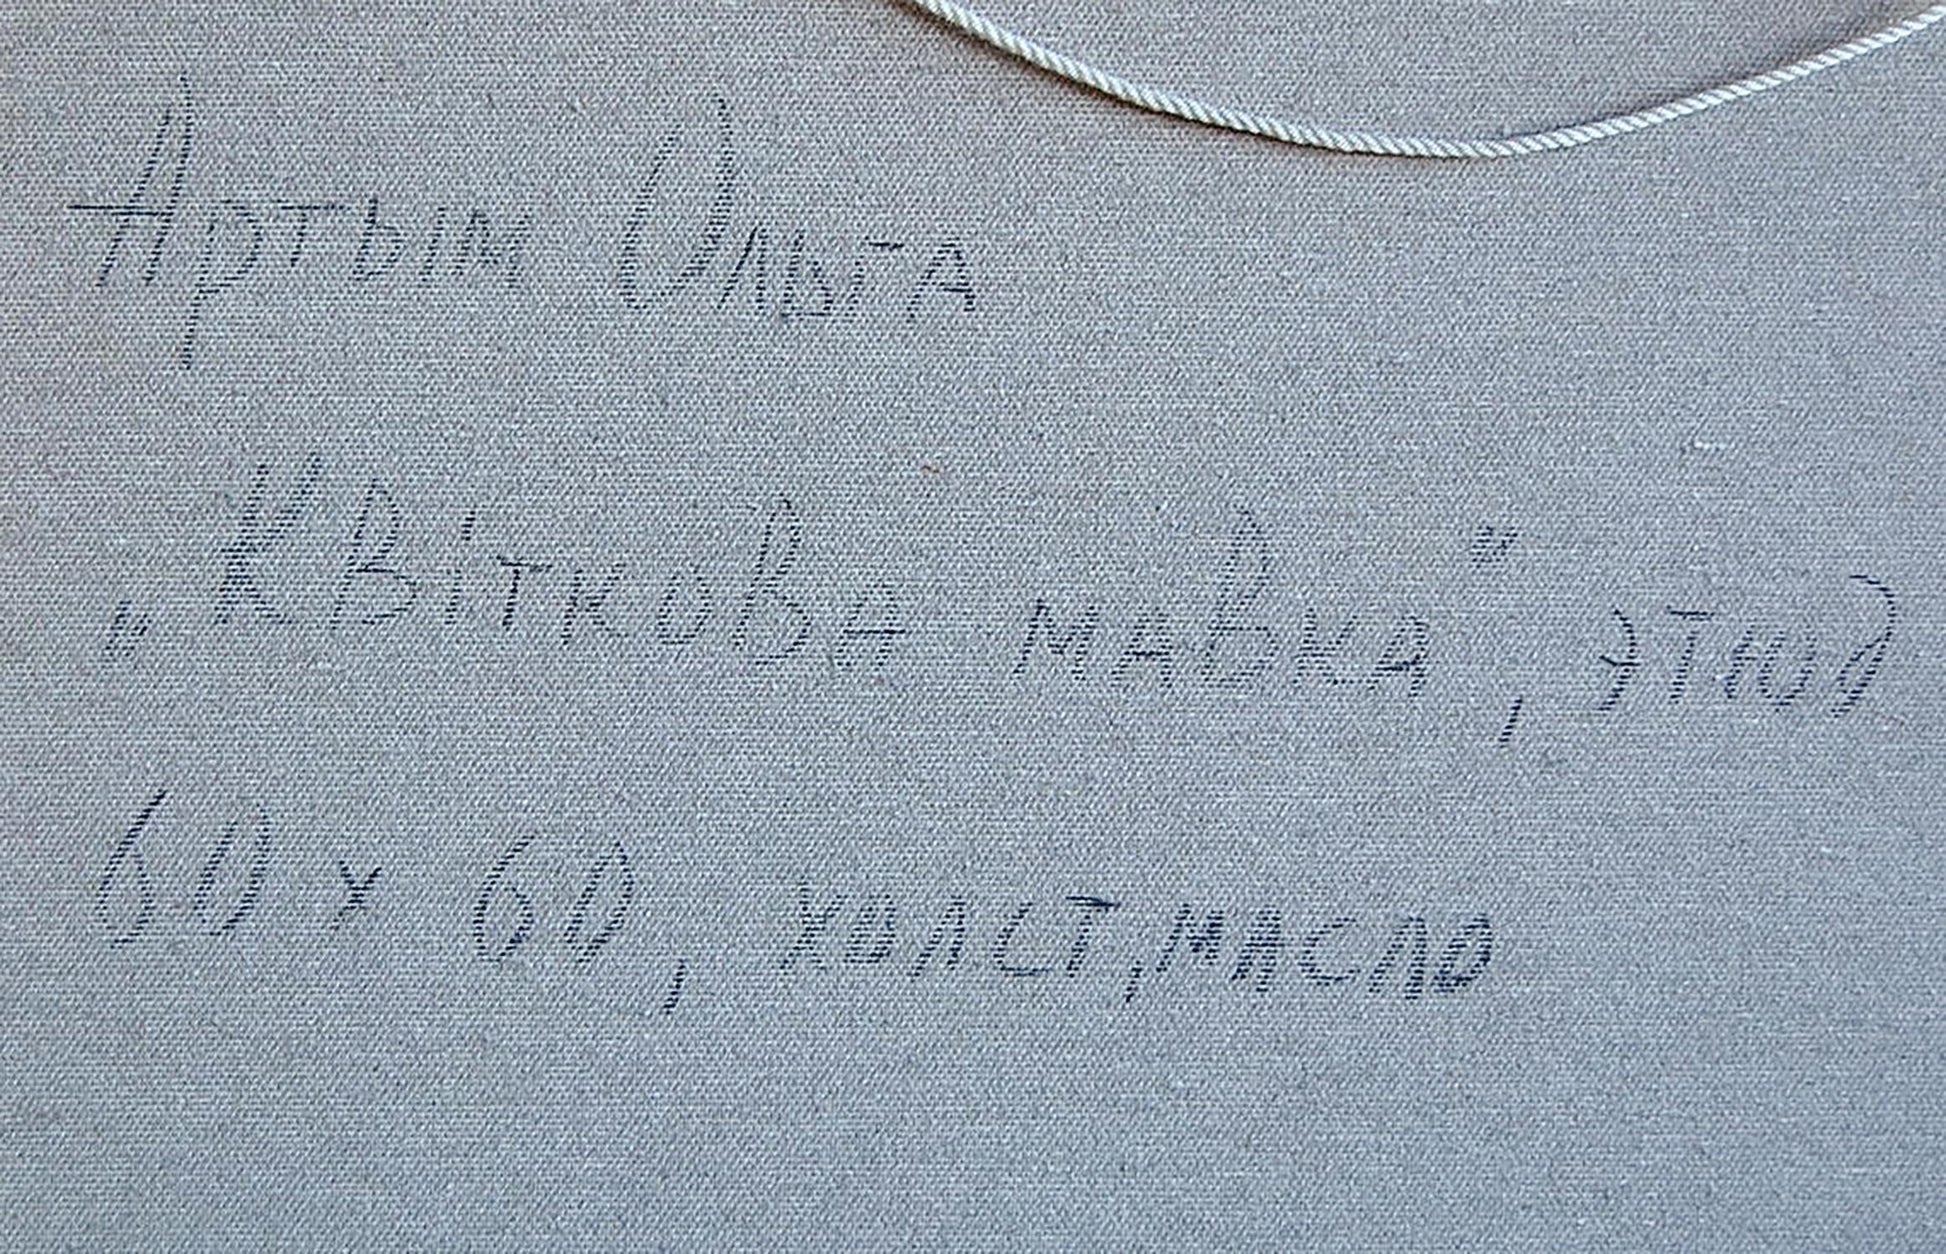 Артым Ольга
„Квіткова мавка", этюд
60 х 60, холст, масло